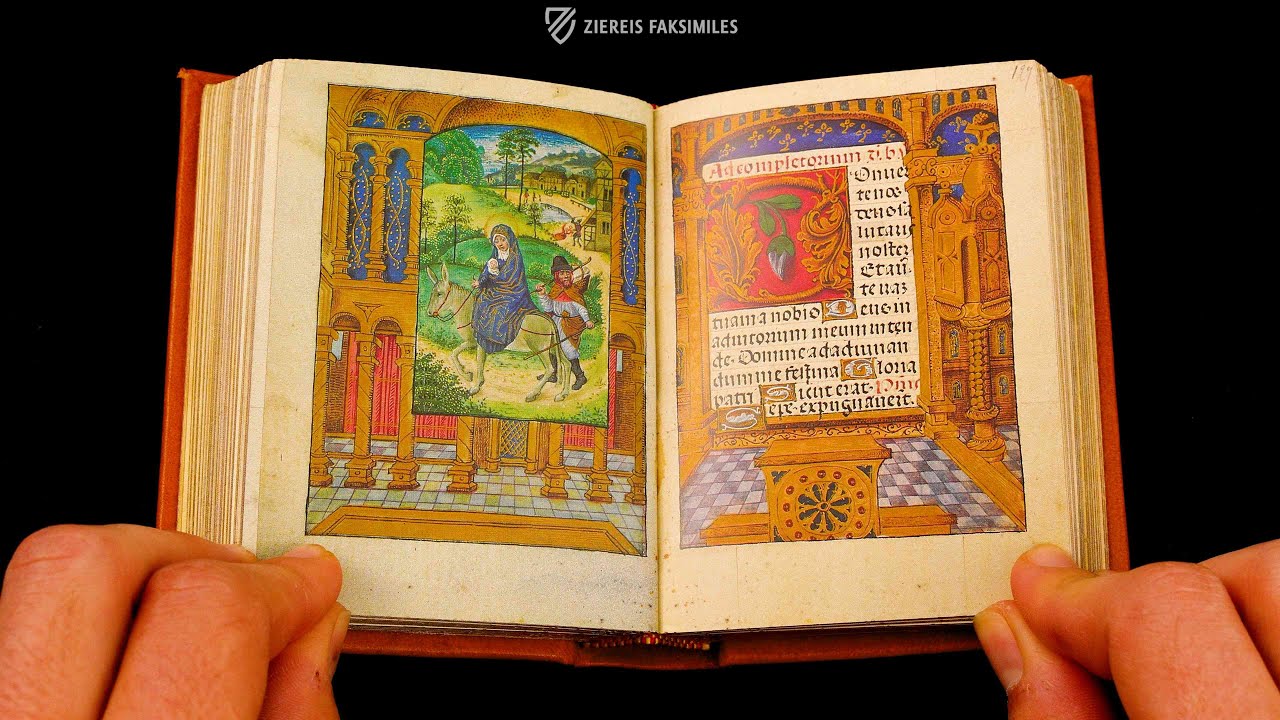 ZIEREIS FAKSIMILES
Ad completorium
Onuer
te nos
lutaris
noster
Et au
tuam a nobis Deus in
adiutorium meum inten
de. Domine ad adiuuan
dum me festina Gloria
patri Sicut erat.
Sepe expugnauert.